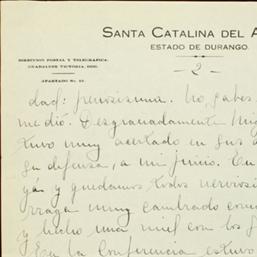 SANTA CATALINA DEL A
ESTADO DE DURANGO.
DIRECCION POSTAL Y TELEGRAFICA.
GUADALUPE VICTORIA, DGO.
APARTADO No.
- 2 -
dad: penosisima. No, sabes
medió. Desgraciadamente
tuvo muy acertado en sus
su defensa, a mi juicio. En
gás y quedamos todos nerviosos
rraga muy cambiado con
y hecho una miel con los
En la Conferencia estuvo